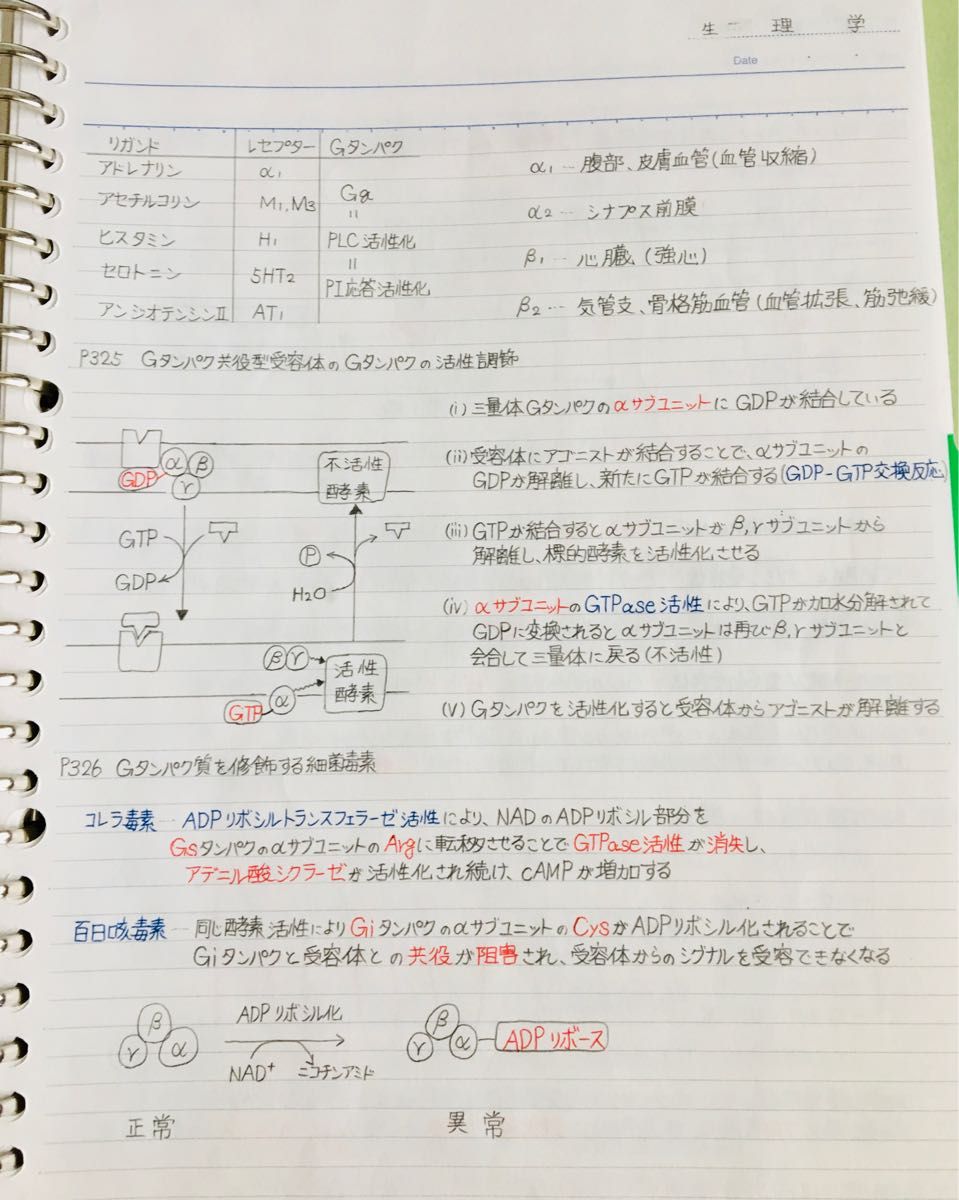 生理学
Date
リガンド レセプター Gタンパク
アドレナリン α1
アセチルコリン M1, M3 Gq
=
ヒスタミン H1 PLC活性化
=
セロトニン 5HT2 PI応答活性化
アンジオテンシンⅡ AT1
α1… 腹部、皮膚血管(血管収縮)
α2… シナプス前膜
β1… 心臓(強心)
β2… 気管支、骨格筋血管(血管拡張、筋弛緩)
P325 Gタンパク共役型受容体のGタンパクの活性調節
α β
γ
GDP
不活性
酵素
GTP
GDP
P
H2O
β γ
活性
酵素
GTP α
(i) 三量体Gタンパクのαサブユニットに GDPが結合している
(ii) 受容体にアゴニストが結合することで、αサブユニットの
GDPが解離し、新たにGTPが結合する(GDP-GTP交換反応)
(iii) GTPが結合するとαサブユニットがβ,γサブユニットから
解離し、標的酵素を活性化させる
(iv) αサブユニットのGTPase活性により、GTPが加水分解されて
GDPに変換されるとαサブユニットは再びβ,γサブユニットと
会合して三量体に戻る(不活性)
(v) Gタンパクを活性化すると受容体からアゴニストが解離する
P326 Gタンパク質を修飾する細菌毒素
コレラ毒素 ― ADPリボシルトランスフェラーゼ活性により、NADのADPリボシル部分を
GsタンパクのαサブユニットのArgに転移させることでGTPase活性が消失し、
アデニル酸シクラーゼが活性化され続け、cAMPが増加する
百日咳毒素 ― 同じ酵素活性によりGiタンパクのαサブユニットのCysがADPリボシル化されることで
Giタンパクと受容体との共役が阻害され、受容体からのシグナルを受容できなくなる
β
γ α
ADPリボシル化
NAD+ ニコチンアミド
β
γ α ADPリボース
正常 異常